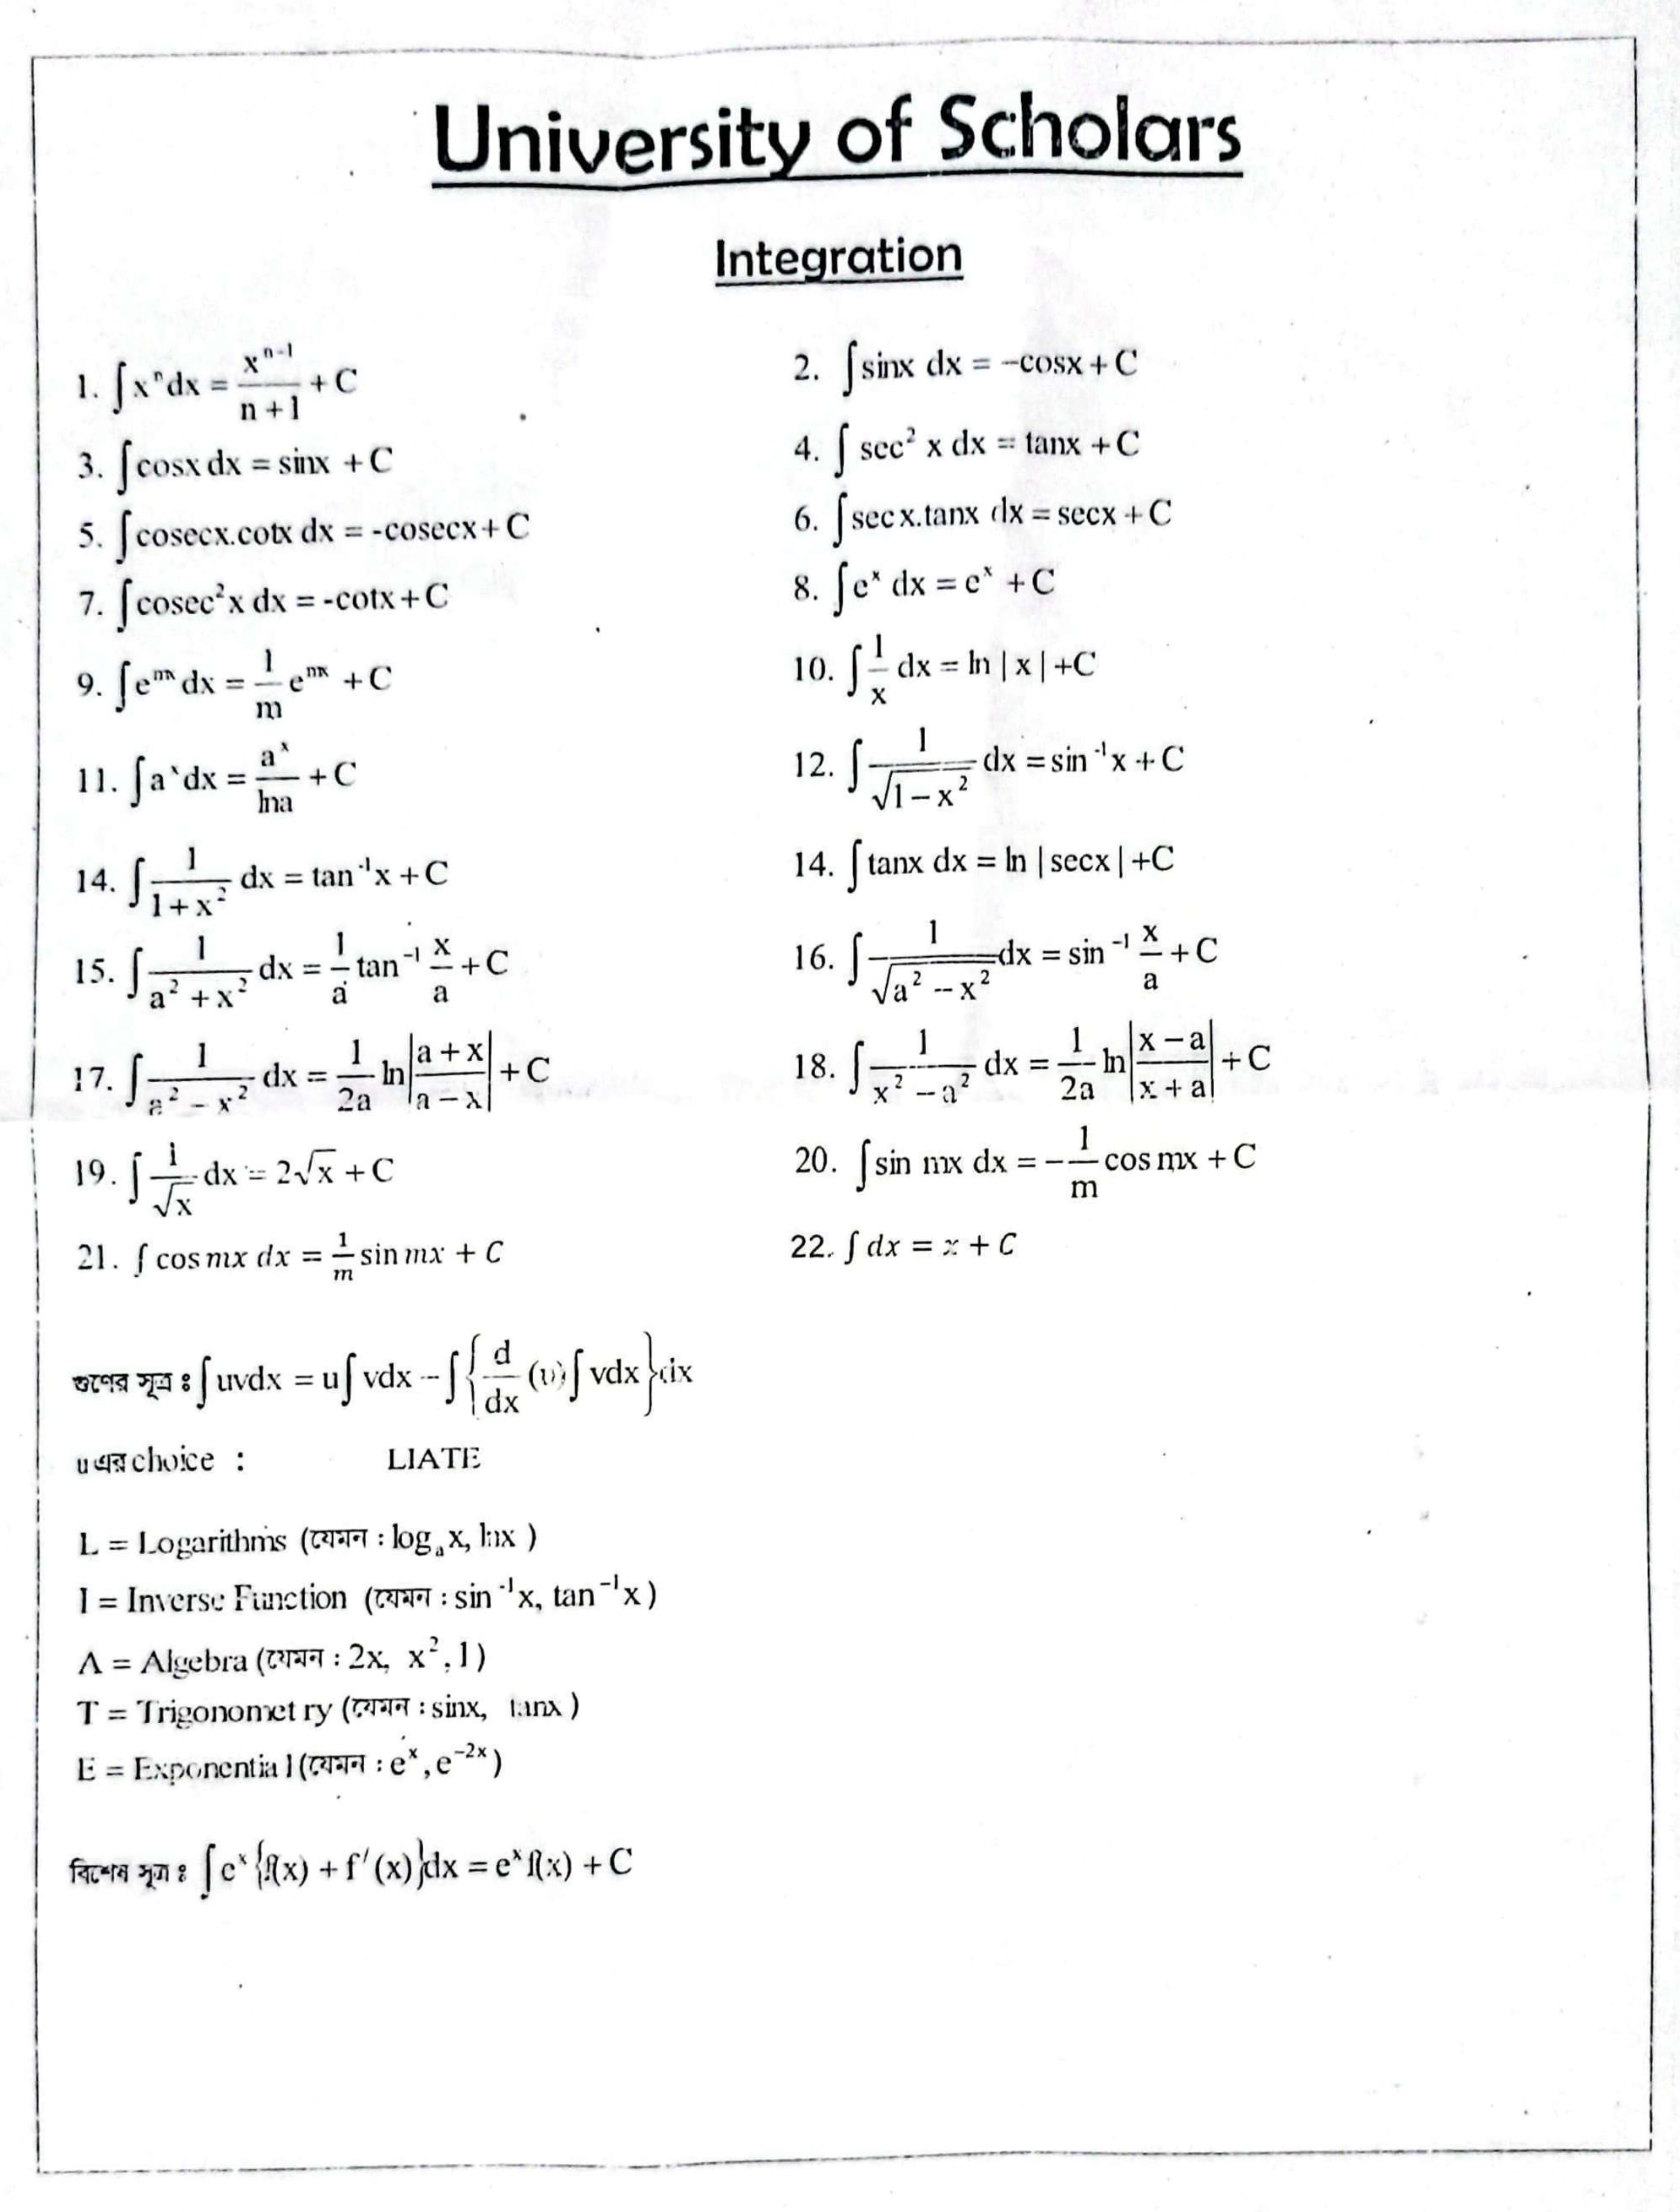 University of Scholars
Integration
1. ∫xⁿdx = xⁿ⁻¹/(n+1) + C
2. ∫sinx dx = −cosx + C
3. ∫cosx dx = sinx + C
4. ∫ sec² x dx = tanx + C
5. ∫cosecx.cotx dx = -cosecx + C
6. ∫secx.tanx dx = secx + C
7. ∫cosec²x dx = -cotx + C
8. ∫eˣ dx = eˣ + C
9. ∫eᵐˣ dx = 1/m eᵐˣ + C
10. ∫1/x dx = ln | x | +C
11. ∫aˣdx = aˣ/lna + C
12. ∫1/√(1−x²) dx = sin⁻¹x + C
14. ∫1/(1+x²) dx = tan⁻¹x + C
14. ∫tanx dx = ln | secx | +C
15. ∫1/(a²+x²) dx = 1/a tan⁻¹ x/a + C
16. ∫1/√(a²−x²) dx = sin⁻¹ x/a + C
17. ∫1/(a²−x²) dx = 1/2a ln|(a+x)/(a−x)| + C
18. ∫1/(x²−a²) dx = 1/2a ln|(x−a)/(x+a)| + C
19. ∫1/√x dx = 2√x + C
20. ∫sin mx dx = −1/m cos mx + C
21. ∫ cos mx dx = 1/m sin mx + C
22. ∫ dx = x + C
গুণের সূত্র ঃ ∫uvdx = u∫vdx − ∫{d/dx (u)∫vdx}dx
u এর choice : LIATE
L = Logarithms (যেমন : logₐx, lnx )
I = Inverse Function (যেমন : sin⁻¹x, tan⁻¹x )
A = Algebra (যেমন : 2x, x², 1)
T = Trigonometry (যেমন : sinx, tanx )
E = Exponential (যেমন : eˣ, e⁻²ˣ)
বিশেষ সূত্র ঃ ∫eˣ{f(x) + f′(x)}dx = eˣ f(x) + C